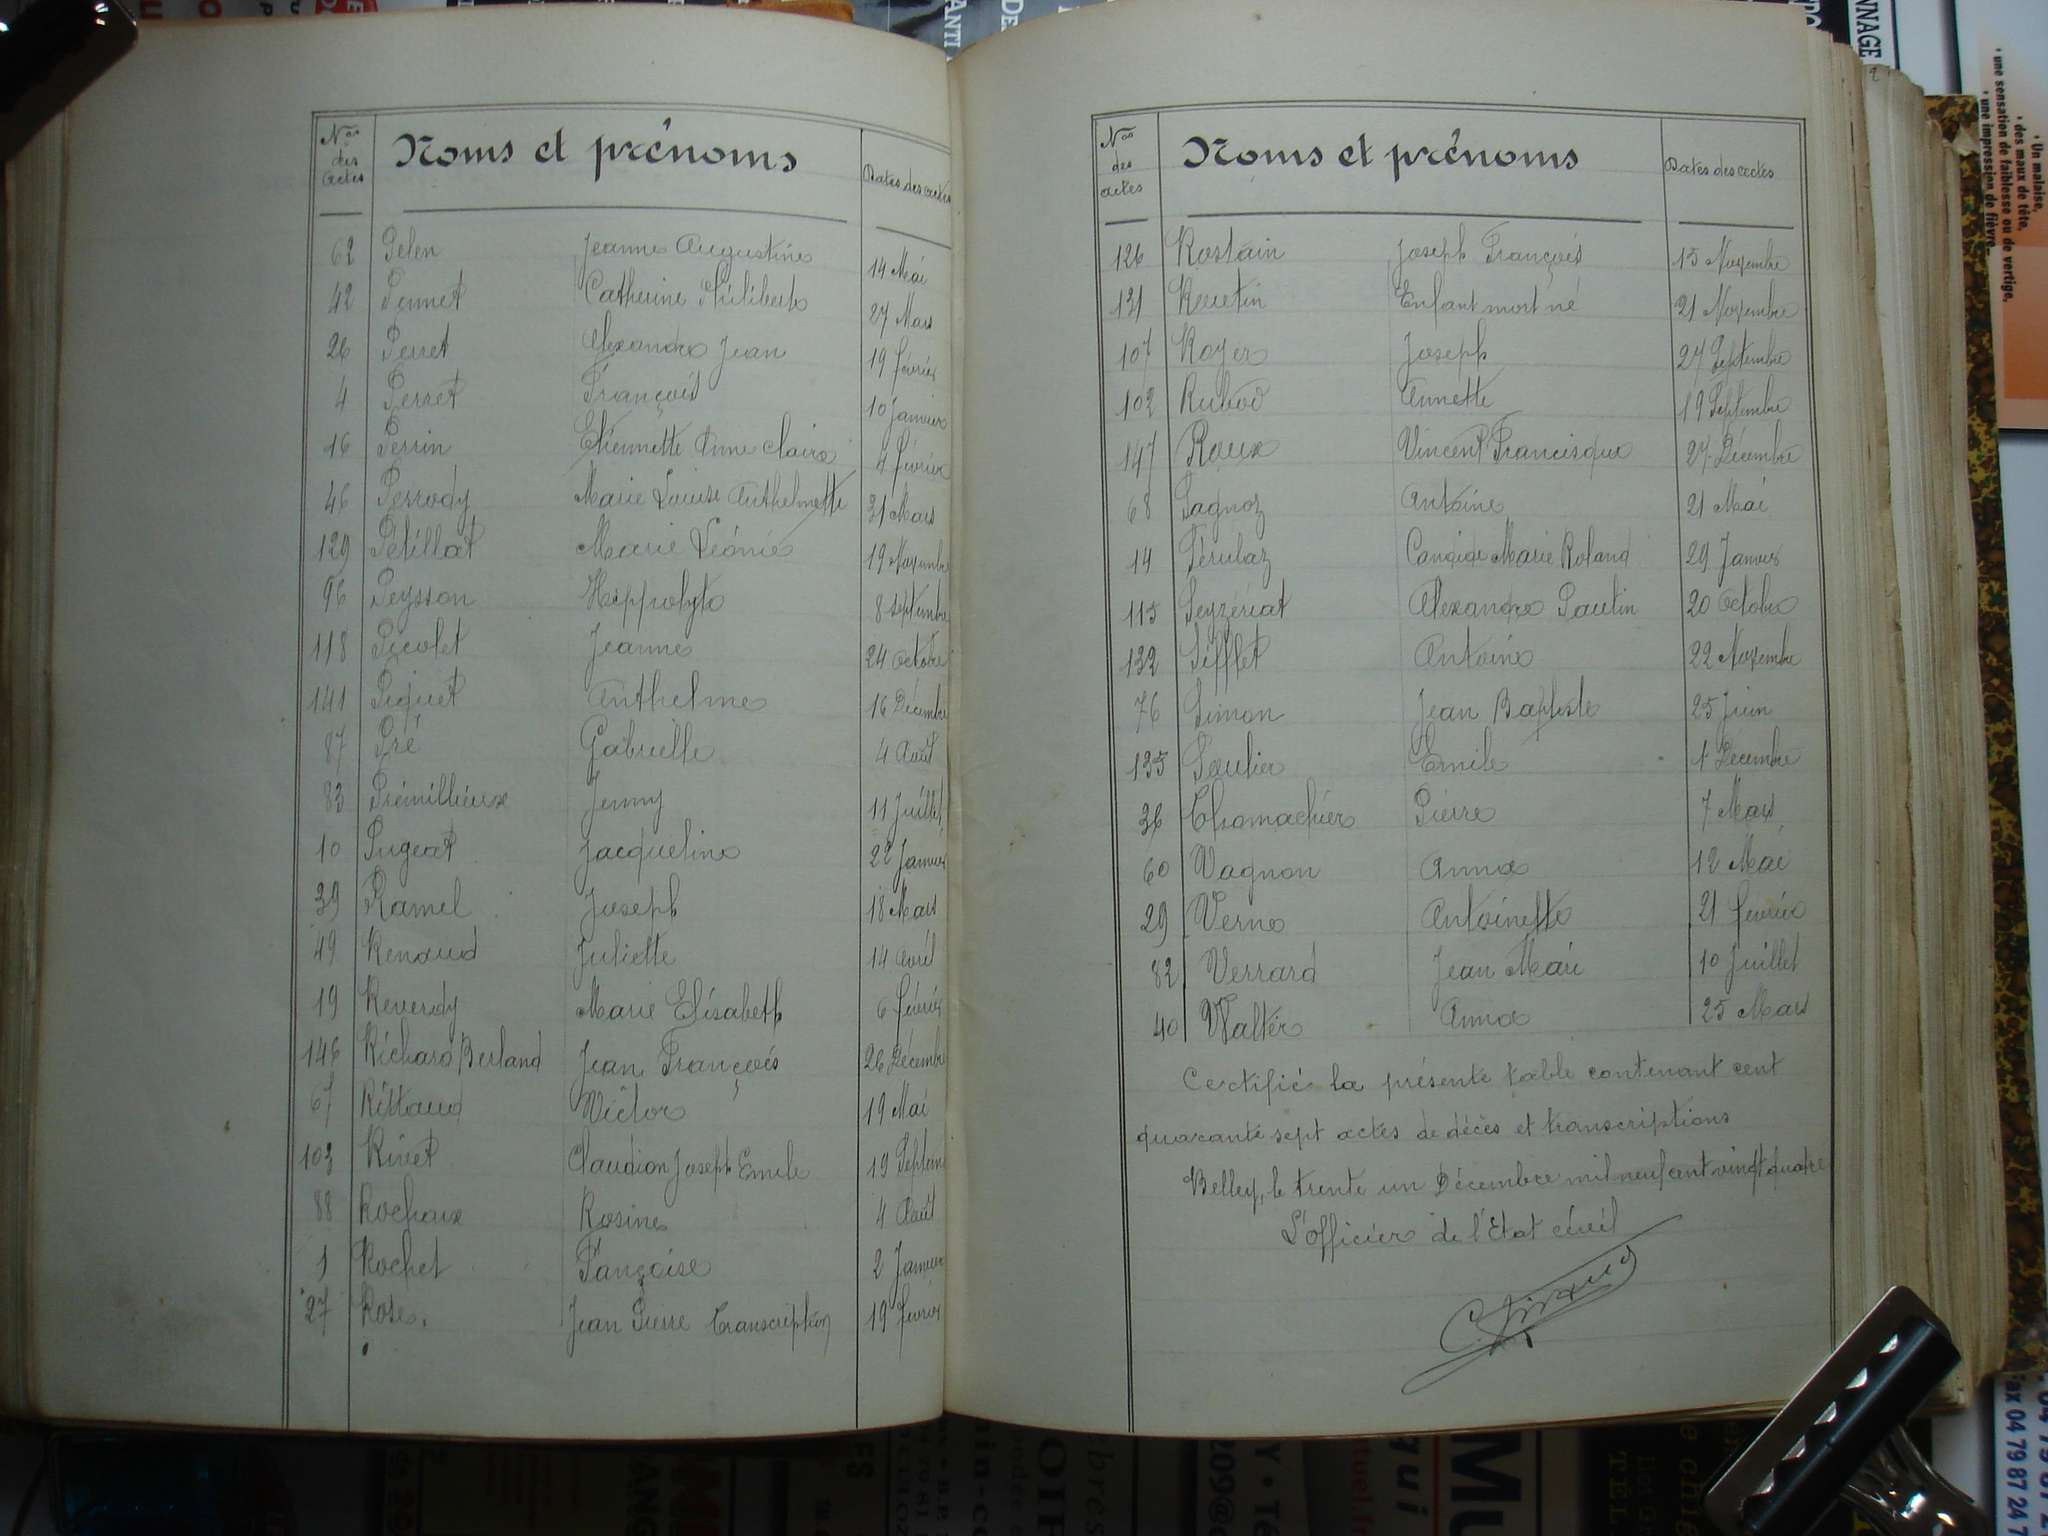 Nos des actes Noms et prénoms Dates des actes
62 Pelen Jeanne Augustine 14 Mai
42 Pennet Catherine Philiberte 27 Mars
26 Perret Alexandre Jean 19 février
4 Perret François 10 Janvier
16 Perrin Etiennette Anne Claire 4 février
46 Perrody Marie Louise Anthelmette 31 Mars
129 Petillat Marie Léonie 19 Novembre
96 Peysson Hippolyte 8 Septembre
118 Picolet Jeanne 24 Octobre
141 Piquet Anthelme 16 Décembre
87 Pré Gabrielle 4 Août
83 Prémillieux Jenny 11 Juillet
10 Pugeat Jacqueline 22 Janvier
39 Ramel Joseph 18 Mars
49 Renaud Juliette 14 Avril
19 Reverdy Marie Elisabeth 6 février
146 Richard Berland Jean François 26 Décembre
67 Rittaud Victor 19 Mai
103 Rivet Claudion Joseph Emile 19 Septem
88 Rochaix Rosine 4 Août
1 Rochet Françoise 2 Janvier
27 Rose. Jean Pierre Transcription 19 février
Nos des actes Noms et prénoms Dates des actes
126 Rostain Joseph François 15 Novembre
131 Enfant mort né 21 Novembre
107 Royer Joseph 27 Septembre
102 Rubod Annette 19 Septembre
147 Roux Vincent Francisque 27 Décembre
68 Sagnoz Antoine 21 Mai
14 Sérulaz Candide Marie Roland 29 Janvier
115 Seyzériat Alexandre Paulin 20 Octobre
132 Sifflet Antoine 22 Novembre
76 Simon Jean Baptiste 25 Juin
135 Saulier Emile 1 Décembre
36 Thomachier Pierre 7 Mars
60 Vagnon Anna 12 Mai
29 Verne Antoinette 21 février
82 Verrard Jean Marie 10 Juillet
40 Walter Anna 25 Mars
Certifiée la présente table contenant cent
quarante sept actes de décès et transcriptions
Belley, le trente un Décembre mil neuf cent vingt quatre
L'officier de l'Etat civil